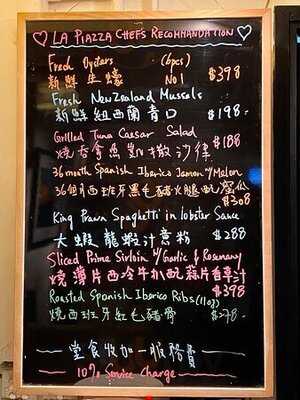 ♡ LA PIAZZA CHEF'S RECOMMANDATION ♡
Fresh Oysters (6pcs)
新鮮生蠔 No1 $398
Fresh New Zealand Mussels
新鮮紐西蘭青口 $198
Grilled Tuna Caesar Salad
燒吞拿魚凱撒沙律 $188
36 month Spanish Iberica Jamon w/ Melon
36個月西班牙黑毛豬火腿配蜜瓜
$308
King Prawn Spaghetti in lobster Sauce
大蝦龍蝦汁意粉 $288
Sliced Prime Sirloin w/ Garlic & Rosemary
燒薄片西冷牛扒配蒜片香草汁
$398
Roasted Spanish Iberico Ribs
燒西班牙紅毛豬骨 $278
堂食收加一服務費
10% Service Charge